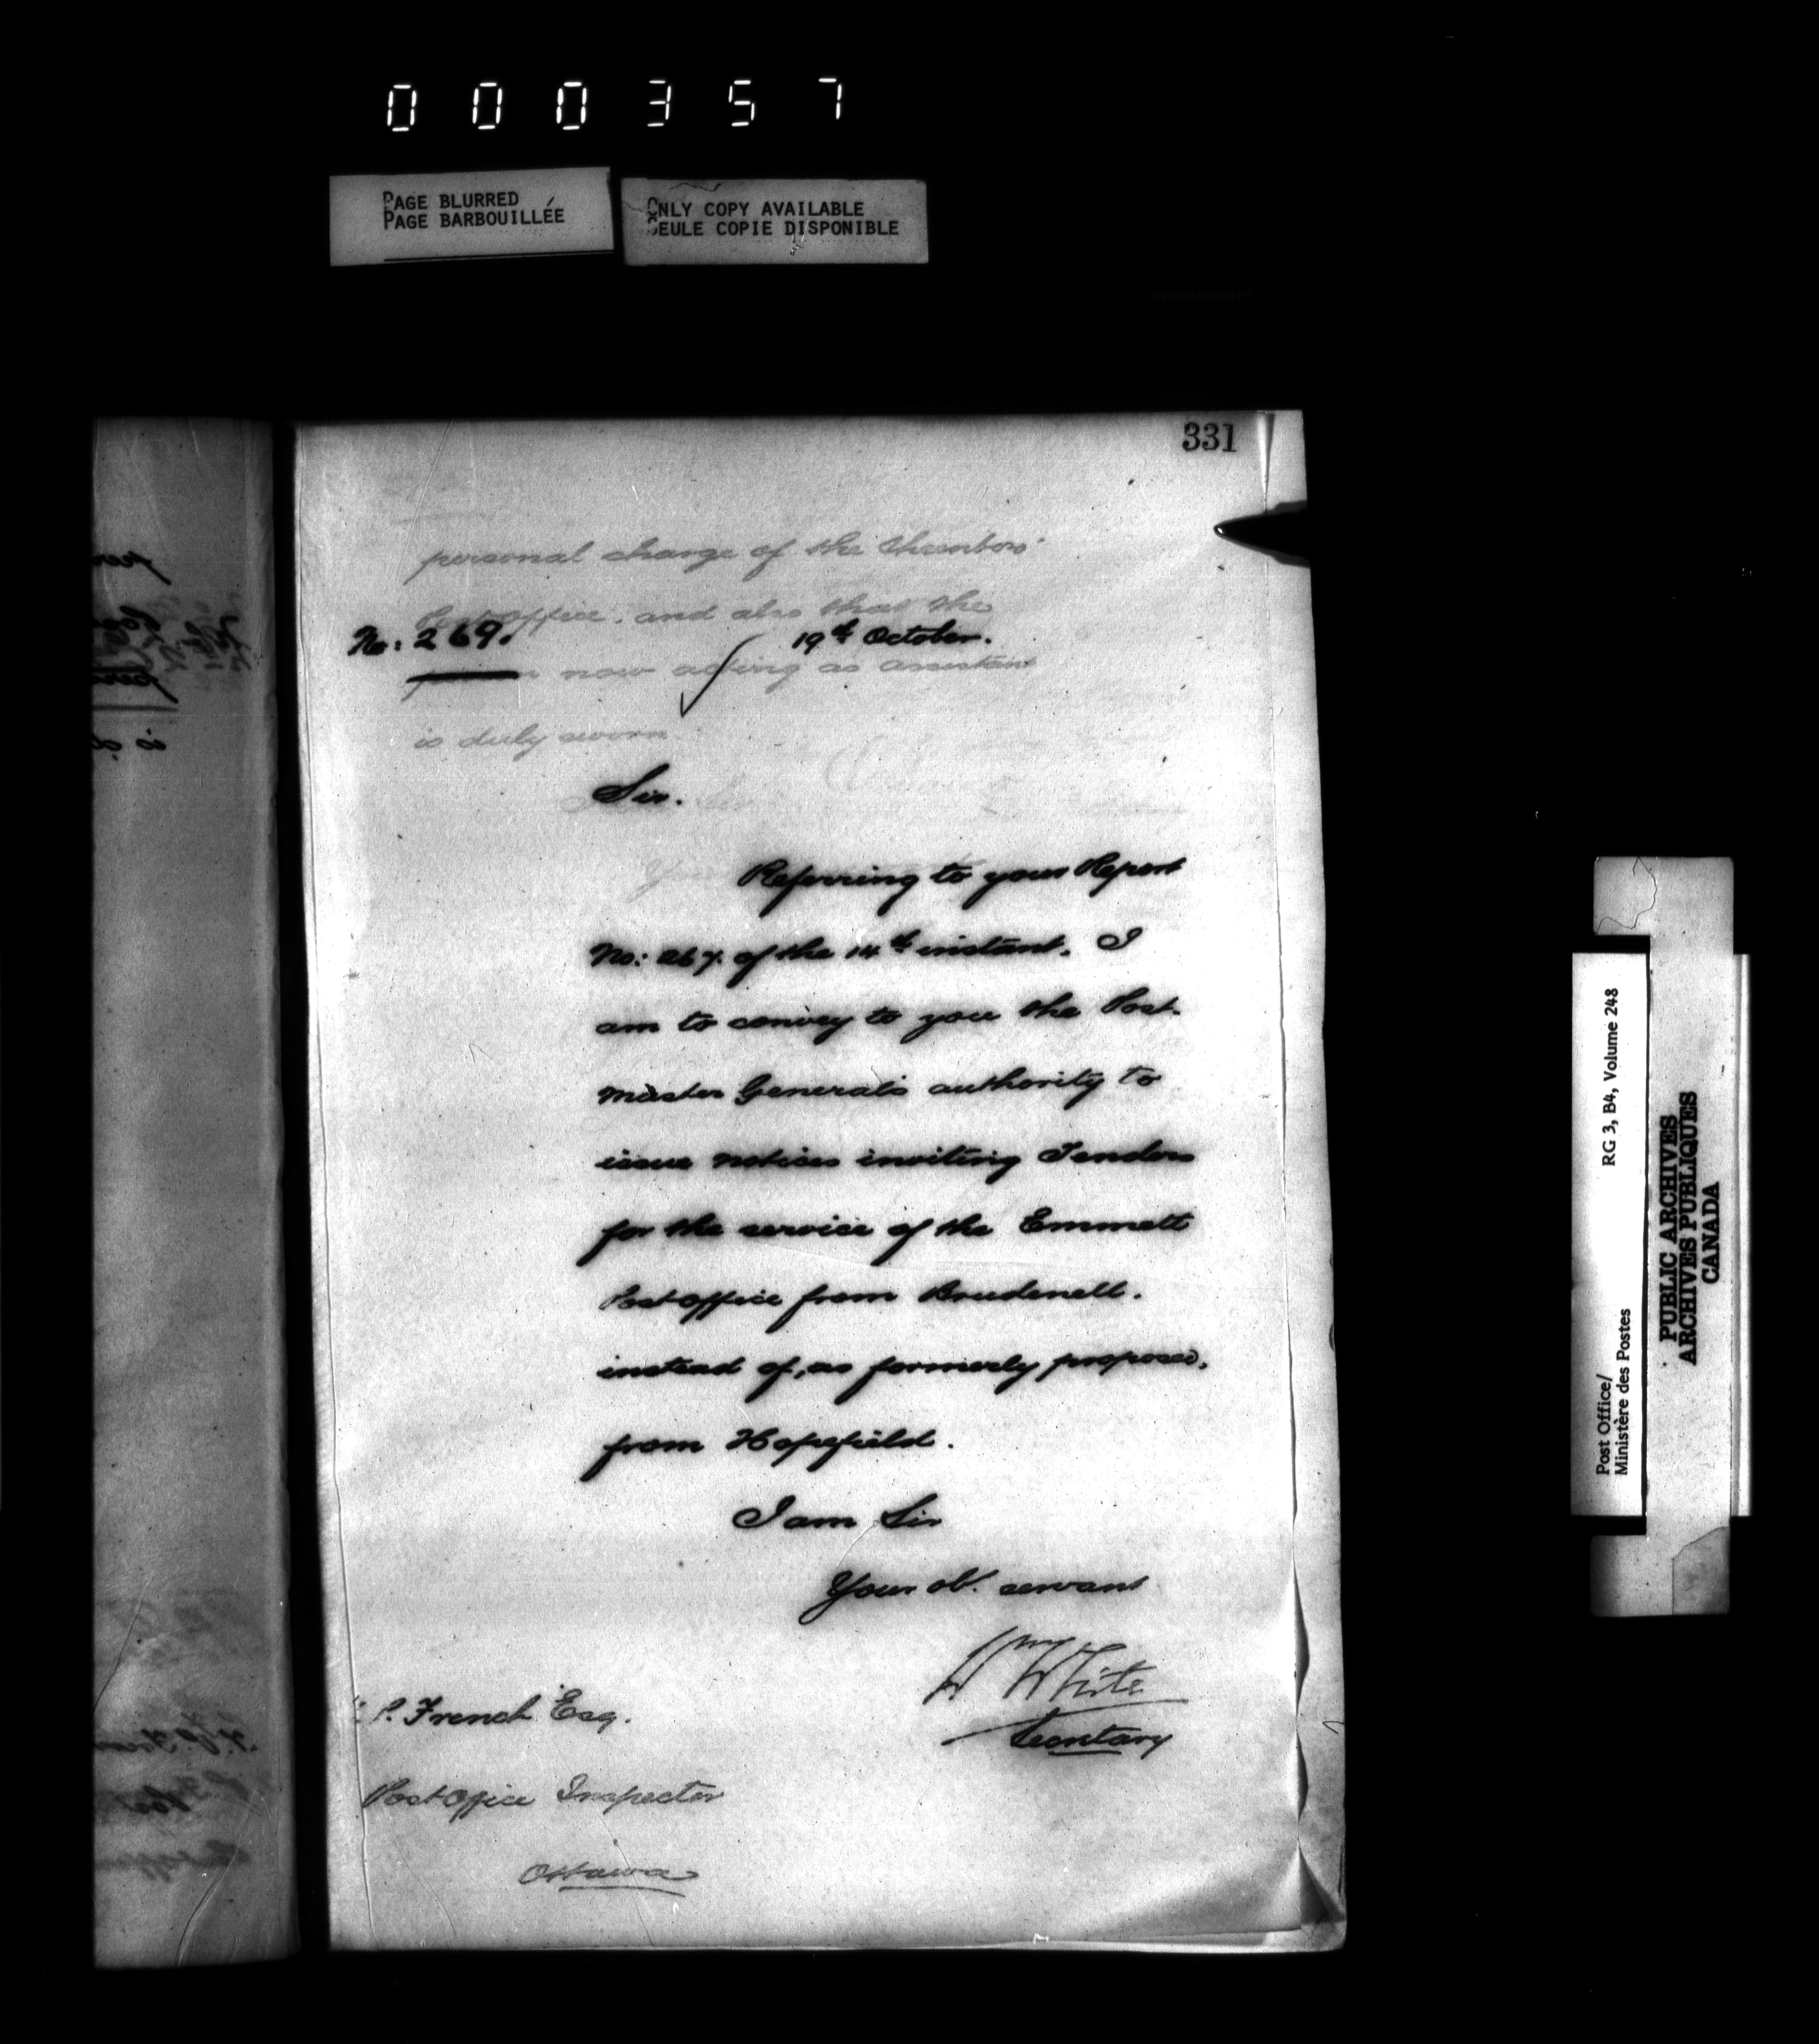 000357
PAGE BLURRED
PAGE BARBOUILLÉE
ONLY COPY AVAILABLE
SEULE COPIE DISPONIBLE
331
personal charge of the
Post Office, and also that the
No: 269.
19th October.
now acting as assistant
is duly sworn
Sir.
Referring to your Report
No: 267. of the 14th instant. I
am to convey to you the Post.
Master General's authority to
issue notices inviting Tenders
for the service of the Emmett
Post Office from Brudenell.
instead of, as formerly proposed,
from Hopefield.
I am Sir
Your obt. servant
Wm White
Secretary
P. French Esq.
Post Office Inspector
Ottawa
Post Office/
Ministère des Postes
RG 3, B4, Volume 248
PUBLIC ARCHIVES
ARCHIVES PUBLIQUES
CANADA